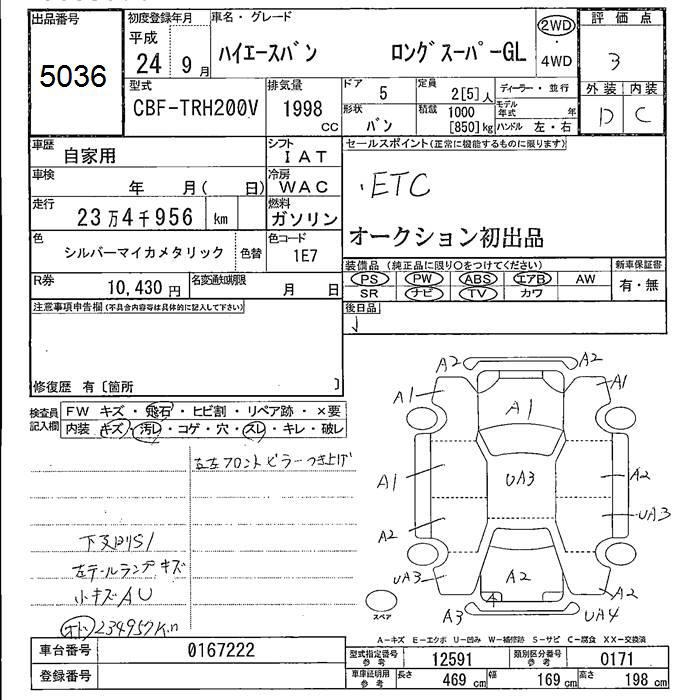 出品番号
5036
初度登録年月
平成
24 9月
車名・グレード
ハイエースバン ロングスーパーGL
2WD
・
4WD
評価点
3
外装 内装
D C
型式
CBF-TRH200V
排気量
1998
cc
ドア 5
形状 バン
定員 2[5]人
積載 1000
[850]kg
ディーラー・並行
モデル年式 年
ハンドル 左・右
車歴 自家用
シフト
IAT
車検 年 月( 日)
冷房
WAC
走行 23万4千956 km
燃料
ガソリン
色 シルバーマイカメタリック 色替
色コード
1E7
R券 10,430円
名変通知期限
月 日
セールスポイント(正常に機能するものに限ります)
・ETC
オークション初出品
装備品(純正品に限り○をつけてください)
新車保証書
PS PW ABS エアB AW
SR ナビ TV カワ
有・無
後日品
注意事項申告欄(不具合内容等は具体的に記入して下さい)
修復歴 有〔箇所 〕
検査員記入欄
FW キズ・飛石・ヒビ割・リペア跡・×要
内装 キズ・汚レ・コゲ・穴・スレ・キレ・破レ
フロントピラーつき上げ
左テールランプキズ
小キズAU
234957Km
A2 A2
A1 A1
A1
A1
UA3
A2
A2
UA3
UA3
A2
A2
A3
UA4
スペア
A-キズ E-エクボ U-凹み W-補修跡 S-サビ C-腐食 XX-交換済
車台番号 0167222
登録番号
型式指定番号参考 12591
類別区分番号参考 0171
車庫証明用参考 長さ 469 cm 幅 169 cm 高さ 198 cm